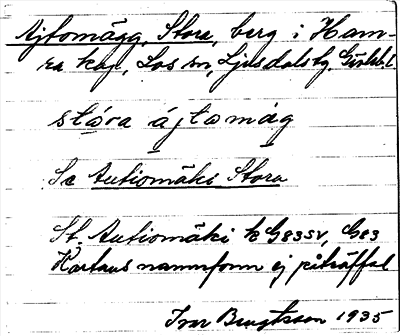 Ajtomägg, Stora, berg i Ham-
ra kap., Los sn, Ljusdals tg. Gävleb. l.
stora ájtomág
Se Autiomäki Stora
St. Autiomäki k G83SV, G83
Kartans namnform ej påträffad
Ivar Bengtsson 1935